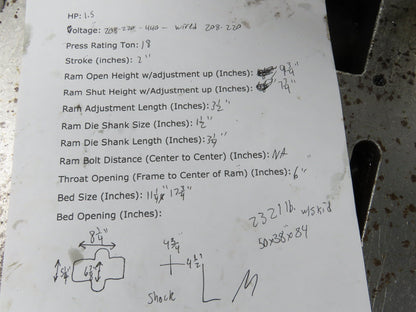 HP: 1.5
Voltage: 208-220-440 - wired 208-220
Press Rating Ton: 18
Stroke (inches): 2"
Ram Open Height w/adjustment up (Inches): 9 3/4"
Ram Shut Height w/adjustment up (Inches): 7 3/4"
Ram Adjustment Length (Inches): 3 1/2"
Ram Die Shank Size (Inches): 1 1/2"
Ram Die Shank Length (Inches): 3 1/4"
Ram Bolt Distance (Center to Center) (Inches): NA
Throat Opening (Frame to Center of Ram) (Inches): 6"
Bed Size (Inches): 11 1/4 x 17 3/4"
Bed Opening (Inches):
2321 lb. w/skid
50x38x84
8 3/4"
4 3/4
4 1/2"
Shock